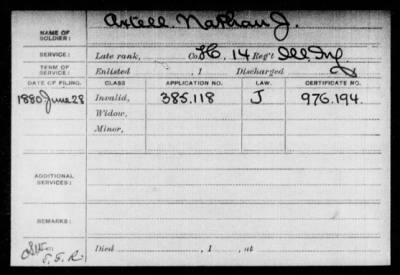 NAME OF SOLDIER: Axtell, Nathan J.
SERVICE: Late rank, Co. H, 14 Reg't Ill. Inf.
TERM OF SERVICE: Enlisted , 1 Discharged , 1
DATE OF FILING. CLASS APPLICATION NO. LAW. CERTIFICATE NO.
1880 June 28 Invalid, 385.118 J 976.194.
Widow,
Minor,
ADDITIONAL SERVICES:
REMARKS:
S.S.R.
Died , 1 , at